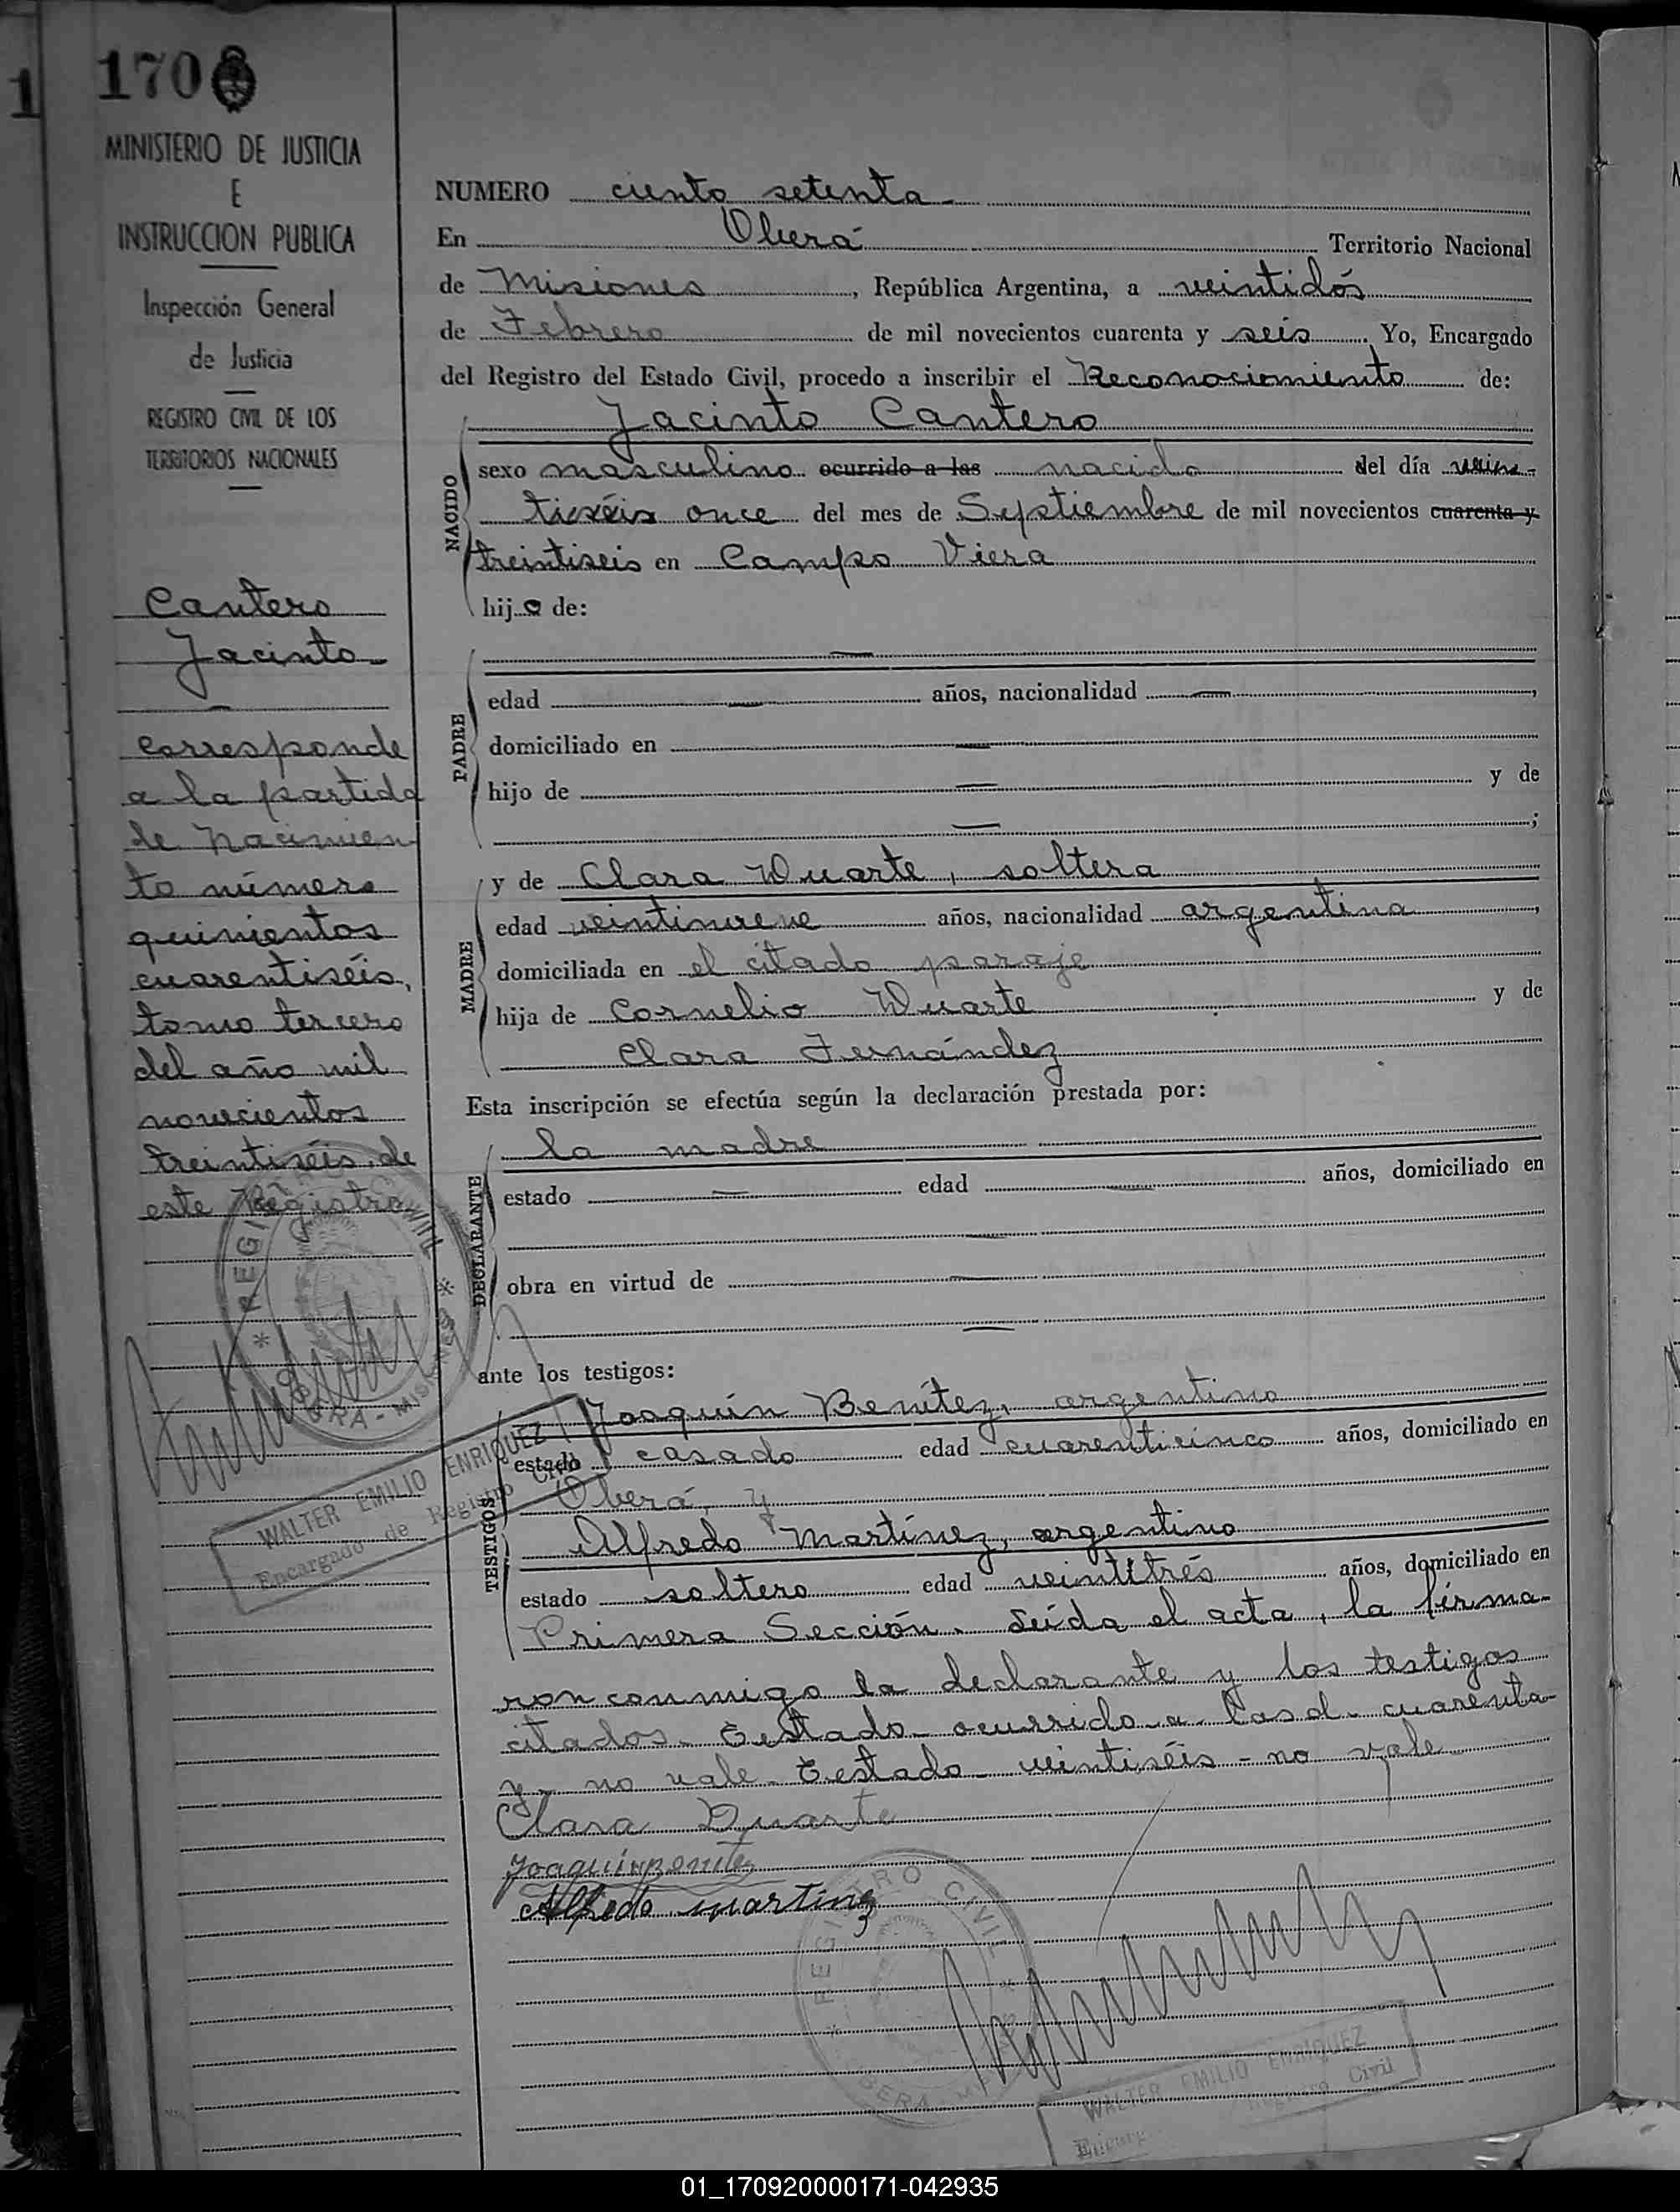 1
170
MINISTERIO DE JUSTICIA
E
INSTRUCCION PUBLICA
Inspección General
de Justicia
REGISTRO CIVIL DE LOS
TERRITORIOS NACIONALES
Cantero
Jacinto
corresponde
a la partida
de nacimien
to número
quinientos
cuarentiséis,
tomo tercero
del año mil
novecientos
treintiséis de
este Registro
REGISTRO CIVIL
OBERA - MISIONES
WALTER EMILIO ENRIQUEZ
Encargado de Registro Civil
NUMERO ciento setenta
En Oberá Territorio Nacional
de Misiones, República Argentina, a veintidós
de Febrero de mil novecientos cuarenta y seis. Yo, Encargado
del Registro del Estado Civil, procedo a inscribir el Reconocimiento de:
Jacinto Cantero
NACIDO
sexo masculino ocurrido a las nacido del día vein-
tiséis once del mes de Septiembre de mil novecientos cuarenta y
treintiseis en Campo Viera
hijo de:
PADRE
edad años, nacionalidad ,
domiciliado en
hijo de y de
;
MADRE
y de Clara Duarte, soltera
edad veintinueve años, nacionalidad argentina,
domiciliada en el citado paraje
hija de Cornelio Duarte y de
Clara Fernández
Esta inscripción se efectúa según la declaración prestada por:
DECLARANTE
la madre
estado edad años, domiciliado en
obra en virtud de
ante los testigos:
TESTIGOS
Joaquín Benítez, argentino
estado casado edad cuarenticinco años, domiciliado en
Oberá, y
Alfredo Martínez, argentino
estado soltero edad veintitrés años, domiciliado en
Primera Sección. Leída el acta, la firma-
ron conmigo la declarante y los testigos
citados. Testado - ocurrido a las d - cuarenta
y - no vale. Testado - veintiséis - no vale
Clara Duarte
Joaquín Benitez
Alfredo martinz
REGISTRO CIVIL
OBERA
WALTER EMILIO ENRIQUEZ
Registro Civil
01_170920000171-042935